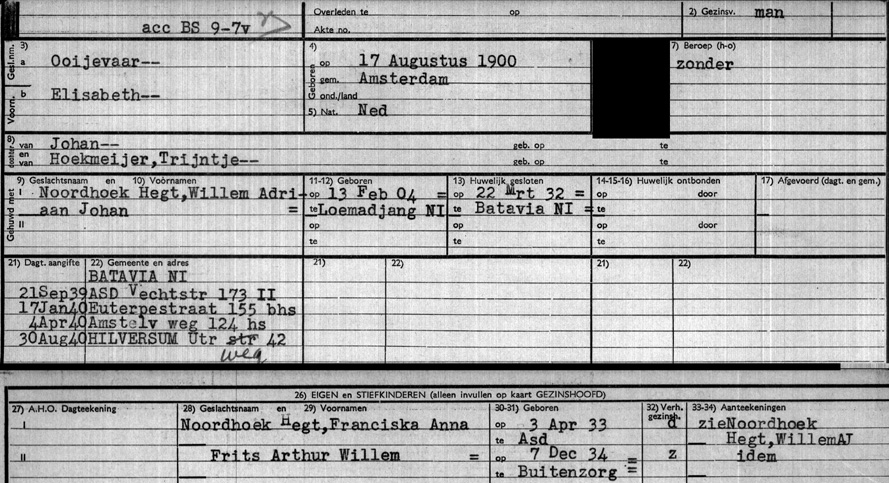 acc BS 9-7v
Overleden te op
Akte no.
2) Gezinsv. man
Gesl.nm. 3) a Ooijevaar--
Voorn. b Elisabeth--
4) Geboren op 17 Augustus 1900
gem. Amsterdam
ond./land
5) Nat. Ned
7) Beroep (h-o)
zonder
8) van Johan-- geb. op te
en van Hoekmeijer,Trijntje-- geb. op te
Gehuwd met 9) Geslachtsnaam en 10) Voornamen 11-12) Geboren 13) Huwelijk gesloten 14-15-16) Huwelijk ontbonden 17) Afgevoerd (dagt. en gem.)
I Noordhoek Hegt,Willem Adri- op 13 Feb 04 = op 22 Mrt 32 = op door
aan Johan = te Loemadjang NI te Batavia NI = te
II op op op door
te te te
21) Dagt. aangifte 22) Gemeente en adres 21) 22) 21) 22)
BATAVIA NI
21Sep39 ASD Vechtstr 173 II
17Jan40 Euterpestraat 155 bhs
4Apr40 Amstelv weg 124 hs
30Aug40 HILVERSUM Utr str 42
weg
26) EIGEN en STIEFKINDEREN (alleen invullen op kaart GEZINSHOOFD)
27) A.H.O. Dagteekening 28) Geslachtsnaam en 29) Voornamen 30-31) Geboren 32) Verh. gezinsh. 33-34) Aanteekeningen
I Noordhoek Hegt,Franciska Anna op 3 Apr 33 d zieNoordhoek
te Asd Hegt,WillemAJ
II Frits Arthur Willem = op 7 Dec 34 = z idem
te Buitenzorg =